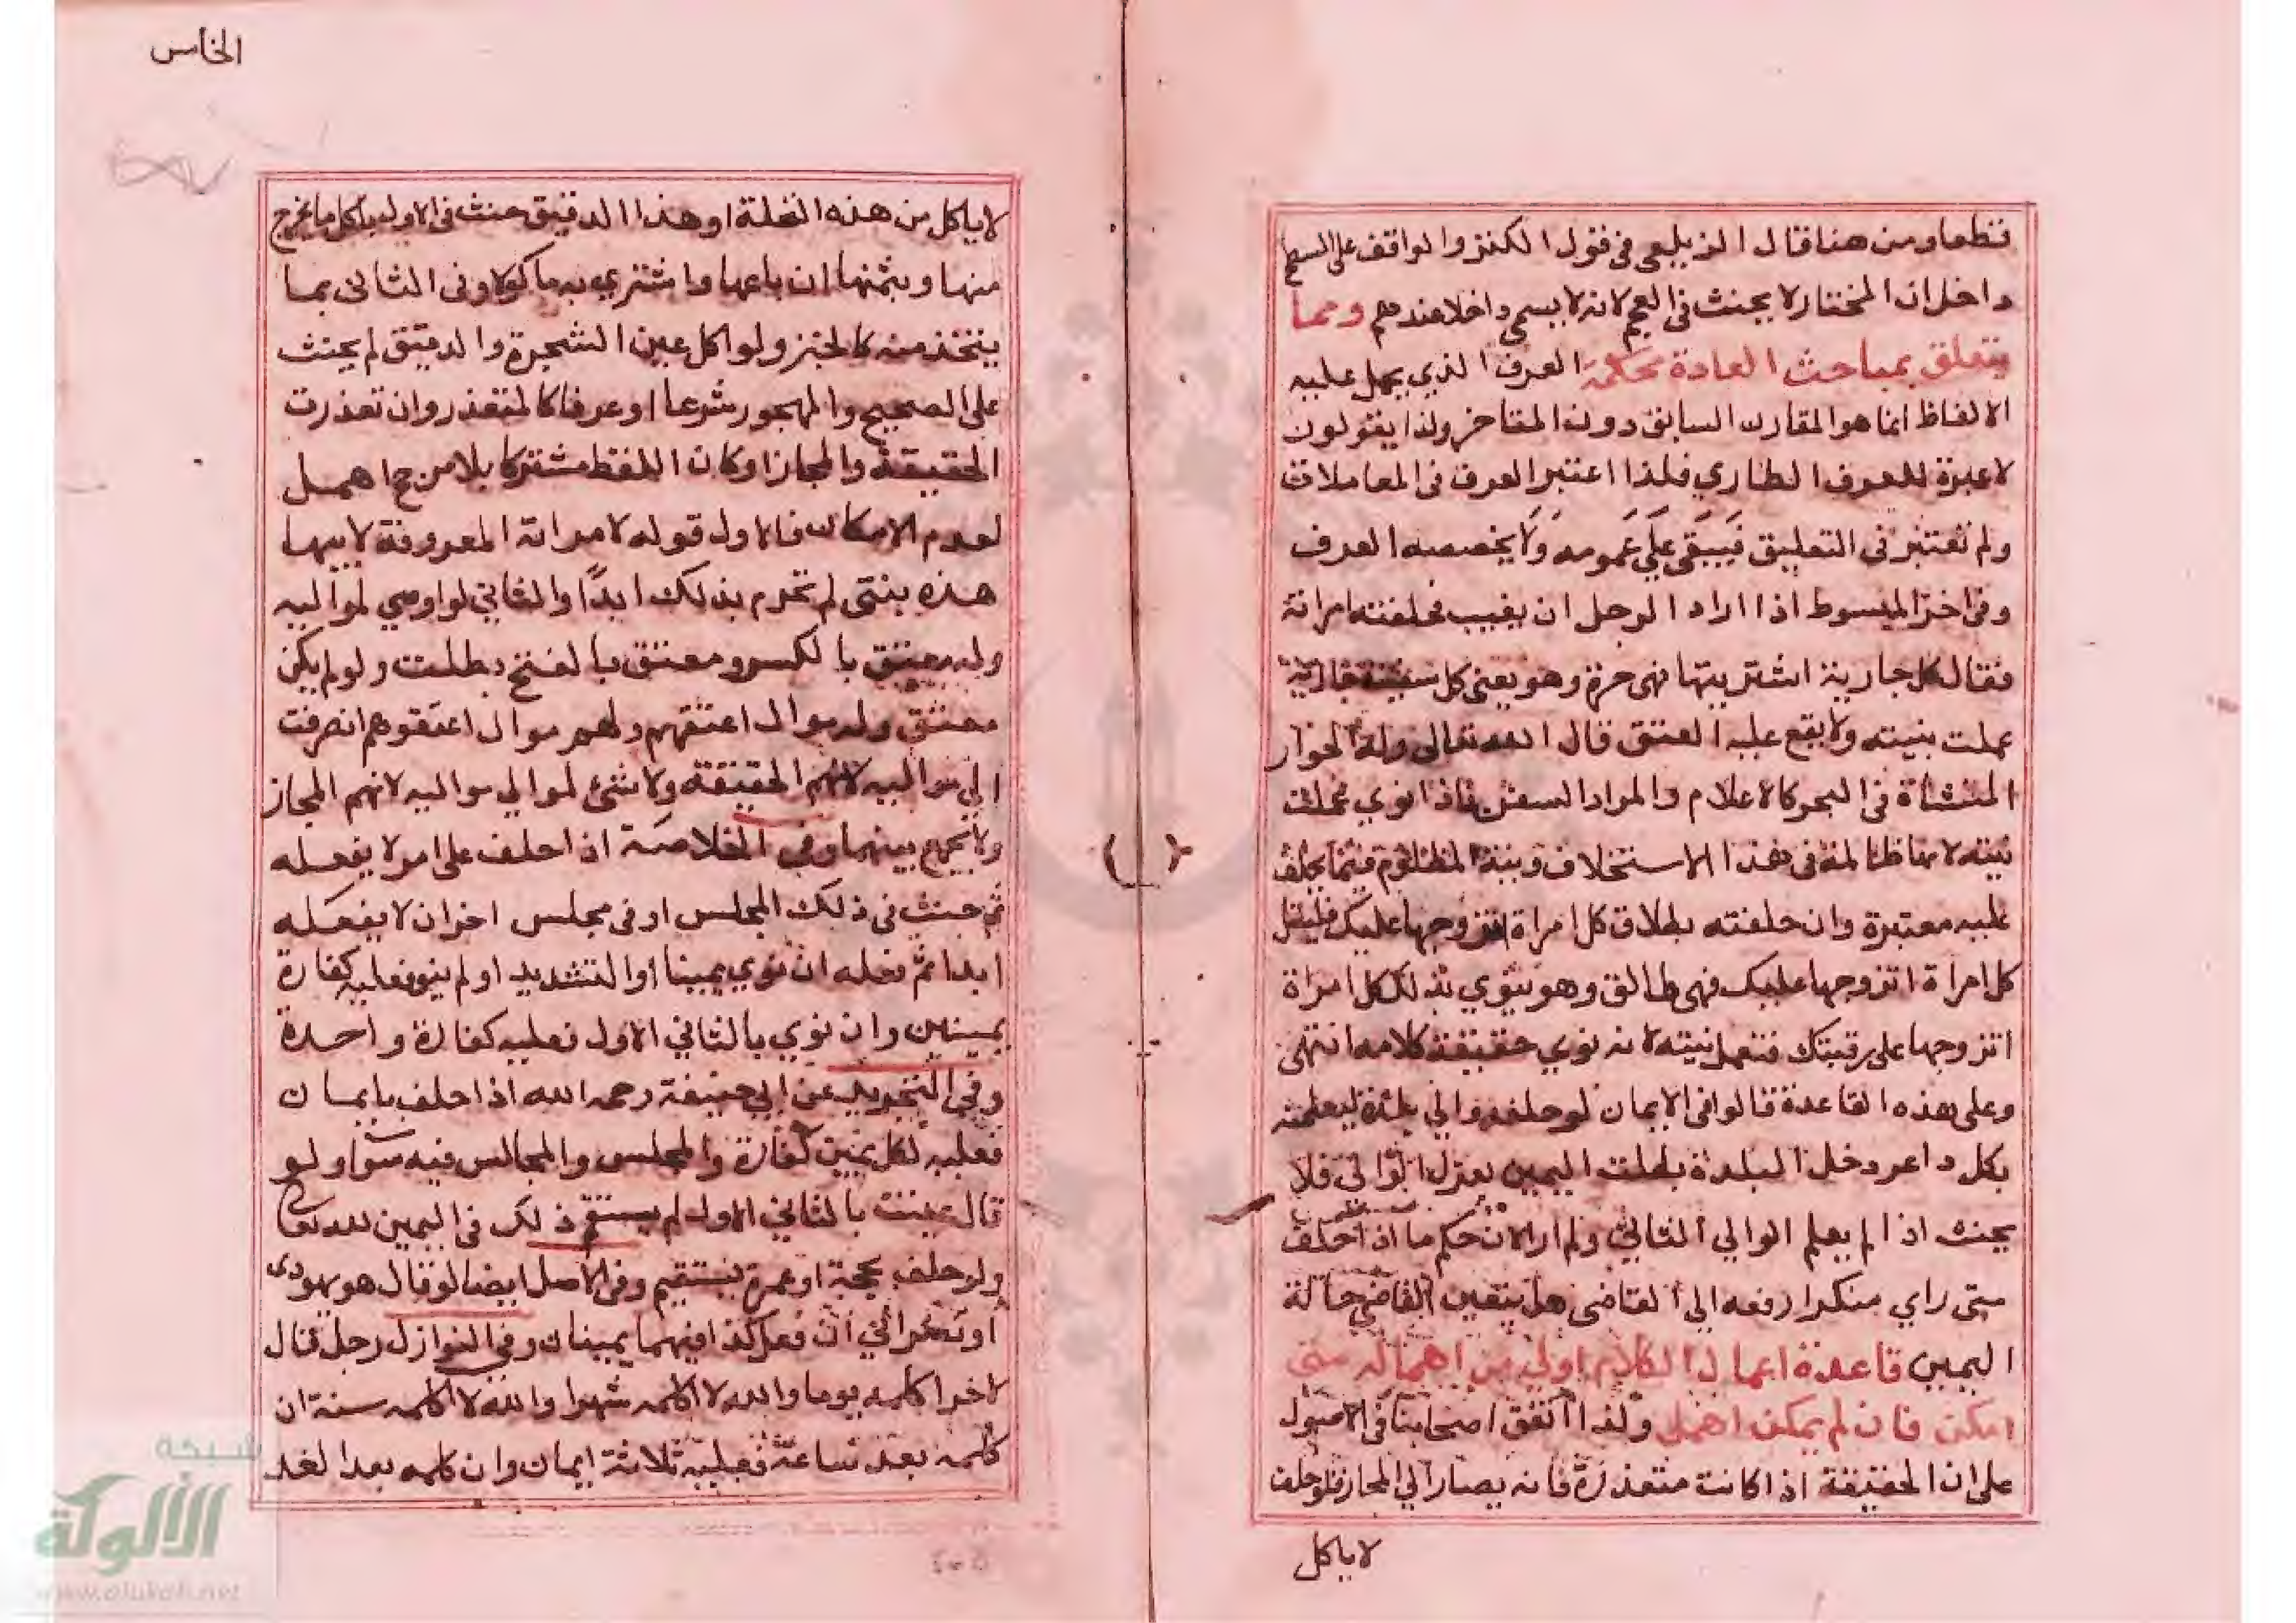 قطعا ومن هنا قال الزيلعي في قول الكنز والواقف على السطح
داخل ان المختار لا يحنث في العجم لانه لا يسمى داخلا عندهم ومما
يتعلق بمباحث العادة محكمة العرف الذي يحمل عليه
الالفاظ انما هو المقارن السابق دون المتاخر ولذا يقولون
لا عبرة للعرف الطاري فلذا اعتبر العرف في المعاملات
ولم تعتبر في التعليق فَيَبقَى عَلَى عَمومه وَلَا يخصصه العرف
وفي اخر المبسوط اذا اراد الرجل ان يغيب فحلفته امراته
فقال كل جارية اشتريتها فهى حرة وهو يعني كل سفينة جارية
عملت بنيته ولا يقع عليه العتق قال الله تعالى وله الجوار
المنشاة في البحر كالاعلام والمراد السفن فاذا نوي عملت
نيته لانها ظالمة في هذا الاستحلاف ونية المظلوم فيما يحلف
عليه معتبرة وان حلفته بطلاق كل امراة اتزوجها عليك فليقل
كل امراة اتزوجها عليك فهى طالق وهو ينوي بذلك كل امراة
اتزوجها على رقبتك فتعمل نيته لانه نوي حقيقة كلامه انتهى
وعلى هذه القاعدة قالوا في الايمان لو حلفه والي بلدة ليعلمنه
بكل داعر دخل البلدة بطلت اليمين بعزل الوالي فلا
يحنث اذا لم يعلم الوالي الثاني ولم ار الان حكم ما اذا حلف
متى راي منكرا رفعه الى القاضي هل يتعين القاضي حالة
اليمين قاعدة اعمال الكلام اولى من اهماله متى
امكن فان لم يمكن اهمل ولذا اتفق اصحابنا في الاصول
على ان الحقيقة اذا كانت متعذرة فانه يصار الي المجاز فلو حلف
لا ياكل
الخامس
لا ياكل من هذه النخلة او هذا الدقيق حنث في الاول باكل ما يخرج
منها وبثمنها ان باعها واشتري به ماكولا وفي الثاني بما
يتخذ منه كالخبز ولو اكل عين الشجرة والدقيق لم يحنث
على الصحيح والمهجور شرعا او عرفا كالمتعذر وان تعذرت
الحقيقة والمجاز او كان اللفظ مشتركا بلا مرجح اهمل
لعدم الامكان فالاول قوله لامراته المعروفة لابيها
هذه بنتى لم تحرم بذلك ابدًا والثاني لو اوصي لمواليه
وله معتق بالكسر ومعتق بالفتح بطلت ولو لم يكن
معتق وله موال اعتقهم ولهم موال اعتقوهم انصرفت
الي مواليه لانهم الحقيقة ولا شئ لموالي مواليه لانهم المجاز
ولا يجمع بينهما وفي الخلاصة اذا حلف على امر لا يفعله
ثم حنث في ذلك المجلس او في مجلس اخر ان لا يفعله
ابدا ثم فعله ان نوي يمينا او التشديد او لم ينو فعليه كفارة
يمينين وان نوي بالثاني الاول فعليه كفارة واحدة
وفي التجريد عن ابي حنيفة رحمه الله اذا حلف بايمان
فعليه لكل يمين كفارة والمجلس والمجالس فيه سوا ولو
قال عنيت بالثاني الاول لم يستقم ذلك في اليمين لله تعا
ولو حلف بحجة او عمرة يستقيم وفي الاصل ايضا لو قال هو يهودى
او نصراني ان فعل كذا فيهما يمينان وفي النوازل رجل قال
لاخر اكلمه يوما والله لا اكلمه شهرا والله لا اكلمه سنة ان
كلمه بعد ساعة فعليه ثلاثة ايمان وان كلمه بعد الغد
شبكة
الألوكة
www.alukah.net